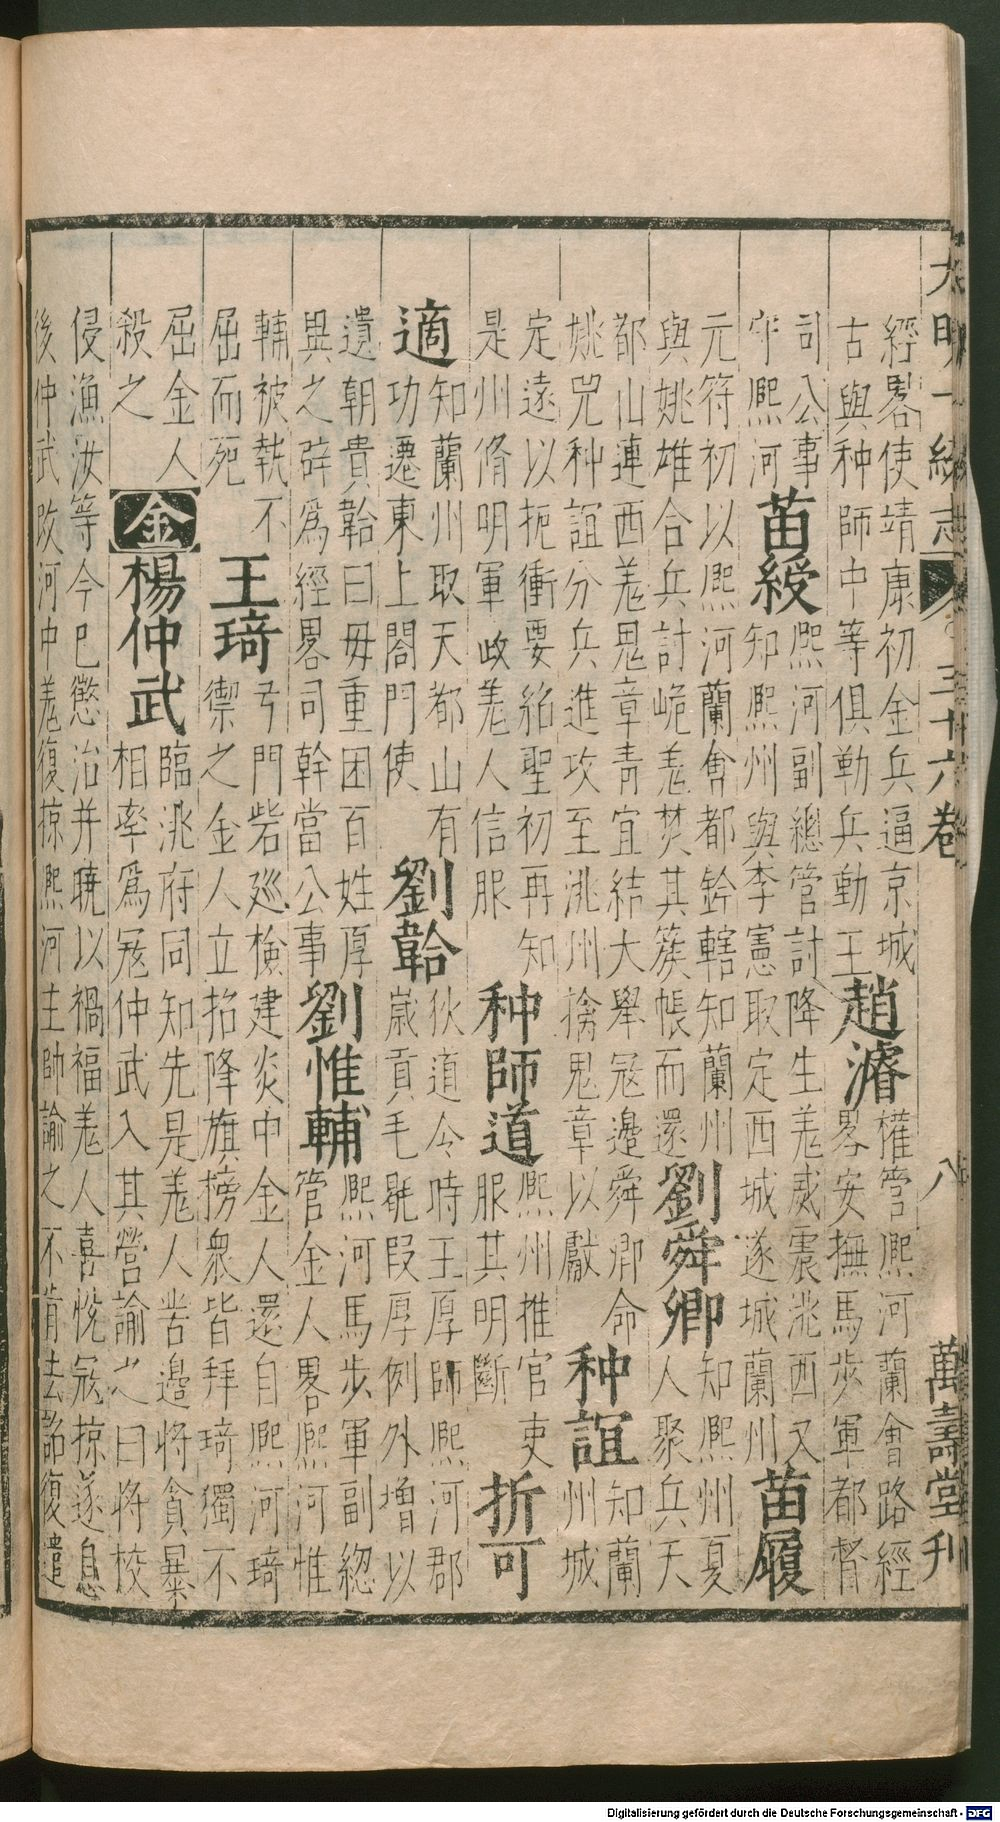 大明一統志 三十六卷 八 萬壽堂刊
經畧使靖康初金兵逼京城
古與种師中等俱勤兵勤王
趙濬
權管熙河蘭會路經
畧安撫馬步軍都督
司公事
守熙河
苗綬
熙河副總管討降生羌威震洮西又
知熙州與李憲取定西城遂城蘭州
苗履
元符初以熙河蘭會都鈐轄知蘭州
與姚雄合兵討峗羌焚其簇帳而還
劉舜卿
知熙州夏
人聚兵天
都山連西羌鬼章青宜結大舉冦邊舜卿命
姚兕种誼分兵進攻至洮州擒鬼章以獻
种誼
知蘭
州城
定遠以扼衝要紹聖初再知
是州脩明軍政羌人信服
种師道
熙州推官吏
服其明斷
折可
適
知蘭州取天都山有
功遷東上閤門使
劉韐
狄道令時王厚師熙河郡
歲貢毛毼段厚例外增以
遺朝貴韐曰毋重困百姓厚
異之辟爲經畧司幹當公事
劉惟輔
熙河馬步軍副總
管金人畧熙河惟
輔被執不
屈而死
王琦
弓門砦廵檢建炎中金人還自熙河琦
禦之金人立招降旗榜衆皆拜琦獨不
屈金人
殺之
金
楊仲武
臨洮府同知先是羌人苦邊將貪暴
相率爲冦仲武入其營諭之曰將校
侵漁汝等今已懲治并曉以禍福羌人喜悅冦掠遂息
後仲武改河中羌復掠熙河主帥諭之不肯去詔復遣
Digitalisierung gefördert durch die Deutsche Forschungsgemeinschaft - DFG